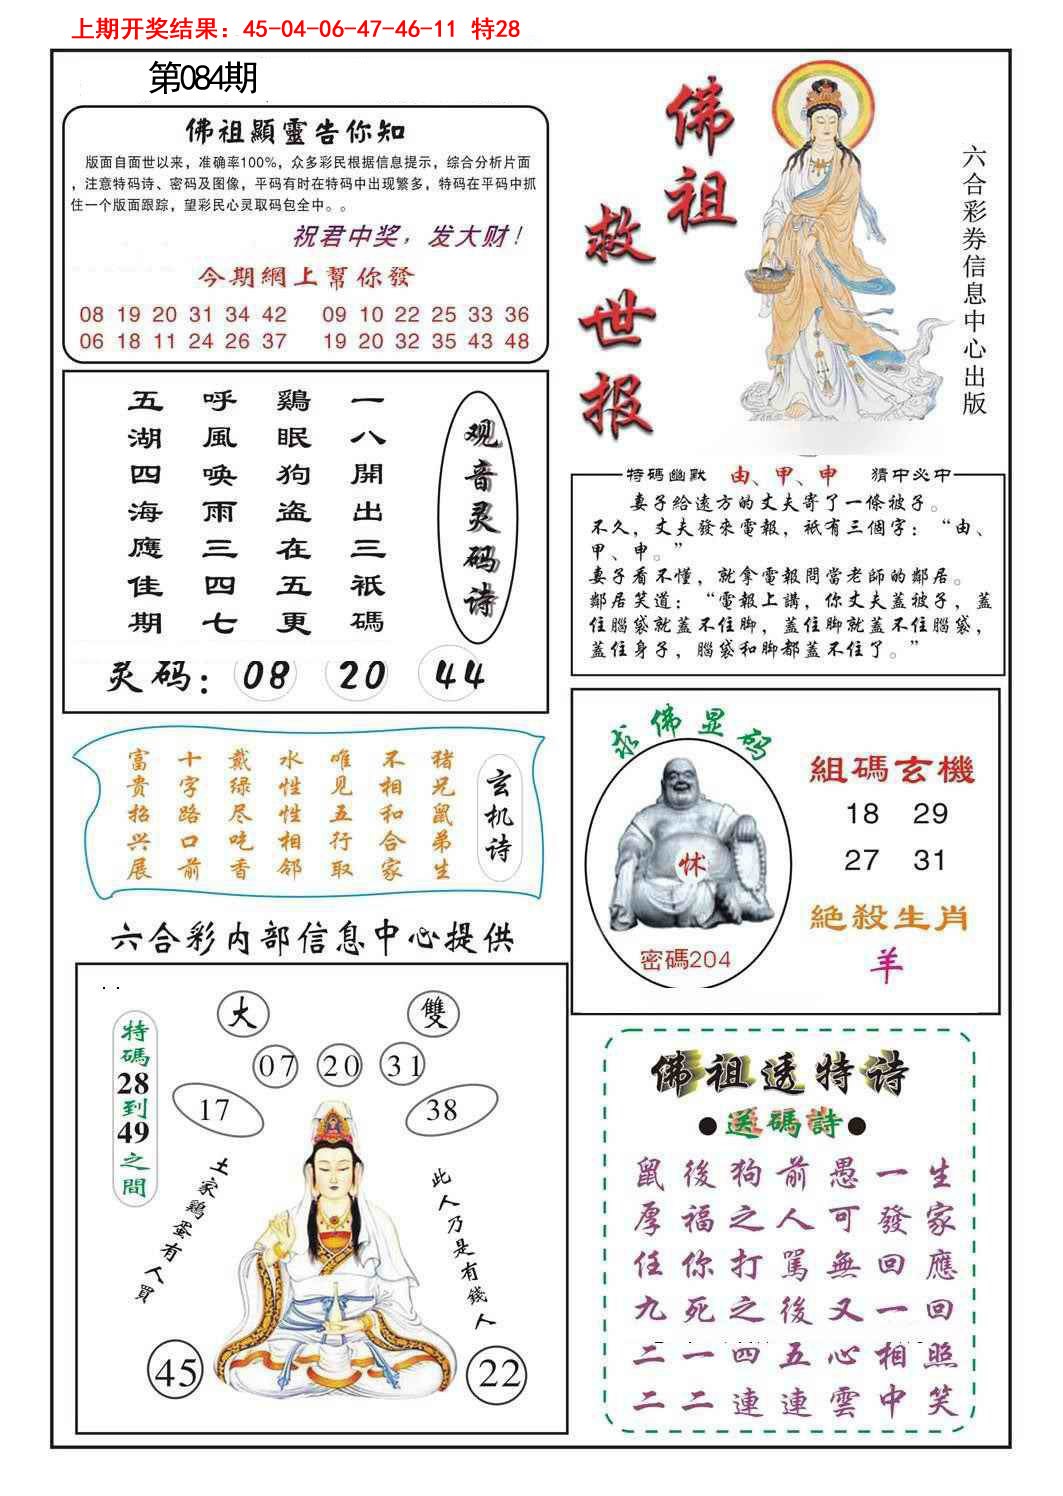 上期开奖结果：45-04-06-47-46-11 特28
第084期
佛祖顯靈告你知
版面自面世以来，准确率100%，众多彩民根据信息提示，综合分析片面
，注意特码诗、密码及图像，平码有时在特码中出现繁多，特码在平码中抓
住一个版面跟踪，望彩民心灵取码包全中。。
祝君中奖，发大财！
今期網上幫你發
08 19 20 31 34 42 09 10 22 25 33 36
06 18 11 24 26 37 19 20 32 35 43 48
佛祖
救世报
六合彩券信息中心出版
观音灵码诗
一八開出三祇碼
鷄眠狗盗在五更
呼風唤雨三四七
五湖四海應佳期
灵码：08 20 44
特碼幽默 由、甲、申 猜中必中
妻子給遠方的丈夫寄了一條被子。
不久，丈夫發來電報，衹有三個字：“由、
甲、申。”
妻子看不懂，就拿電報問當老師的鄰居。
鄰居笑道：“電報上講，你丈夫蓋被子，蓋
住腦袋就蓋不住脚，蓋住脚就蓋不住腦袋，
蓋住身子，腦袋和脚都蓋不住了。”
玄机诗
猪兄鼠弟生
不相和合家
唯见五行取
水性性相邻
戴绿尽吃香
十字路口前
富贵招兴展
求佛显码
怵
密碼204
組碼玄機
18 29
27 31
絕殺生肖
羊
六合彩内部信息中心提供
特碼28到49之間
大 雙
07 20 31
17 38
土家鷄蛋有人買
此人乃是有錢人
45 22
佛祖透特诗
●送碼詩●
鼠後狗前愚一生
厚福之人可發家
任你打駡無回應
九死之後又一回
二一四五心相照
二二連連雲中笑